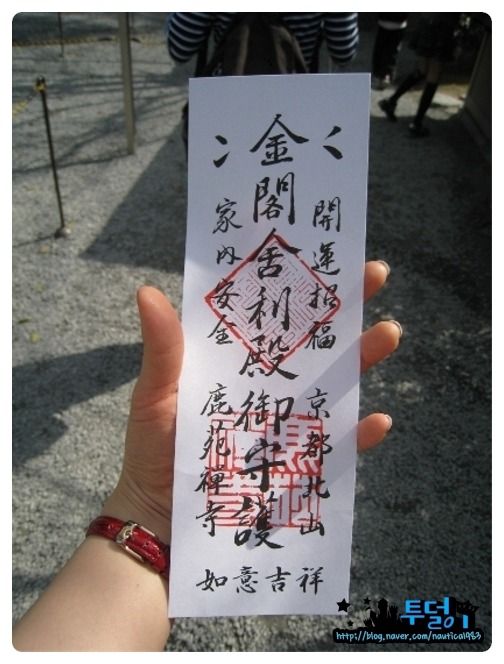 開運招福 京都北山
金閣舎利殿御守護
家内安全 鹿苑禅寺
如意吉祥
투덜이
http://blog.naver.com/nautica1983